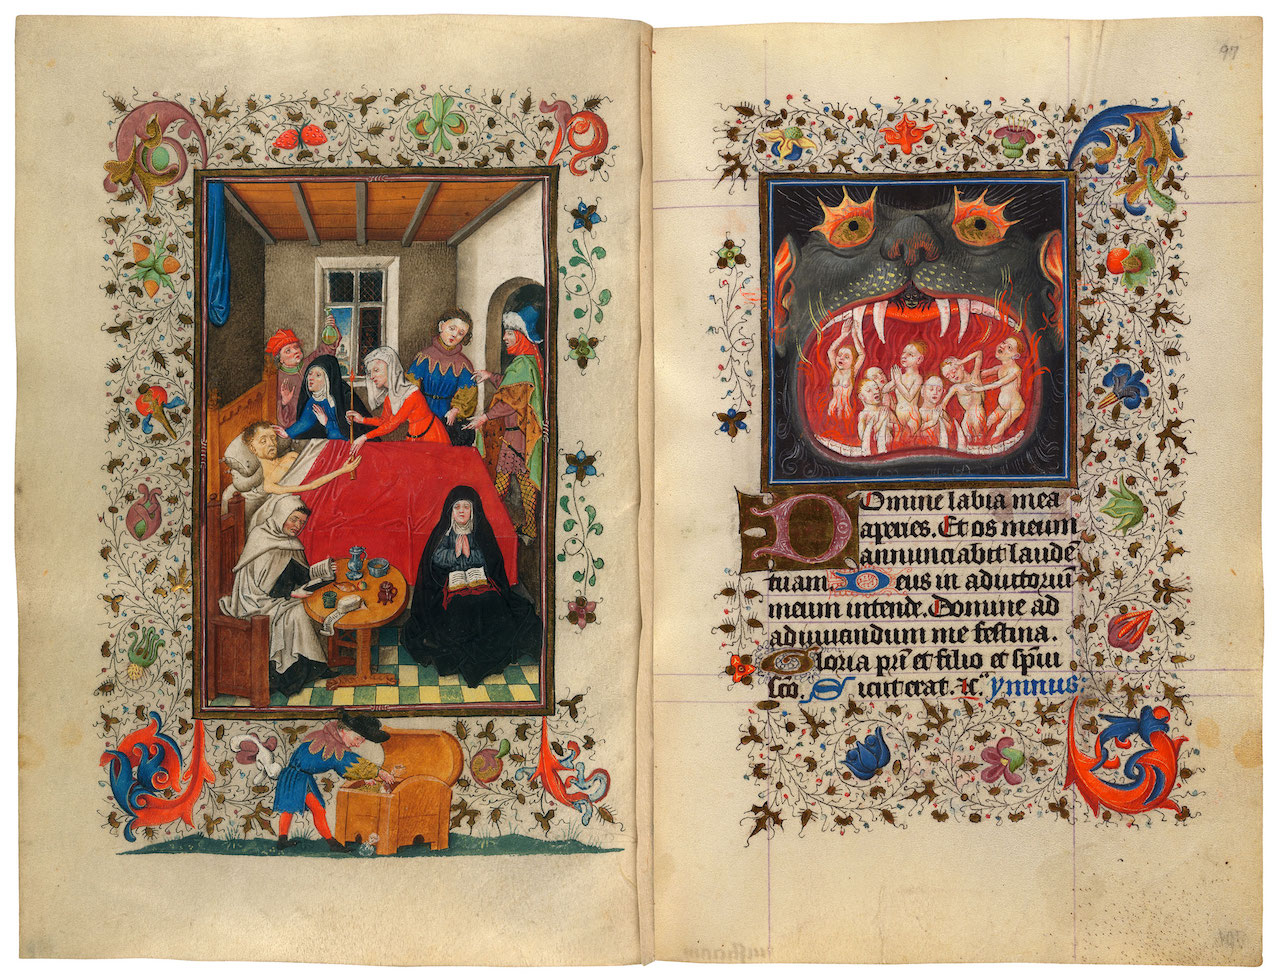 97
Domine labia mea
aperies. Et os meum
annunciabit laudē
tuam Deus in adiutoriū
meum intende. Domine ad
adiuuandum me festina.
Gloria pr̄i et filio et sp̄ui
sc̄o. Sicut erat. ⁊c. ymnus: